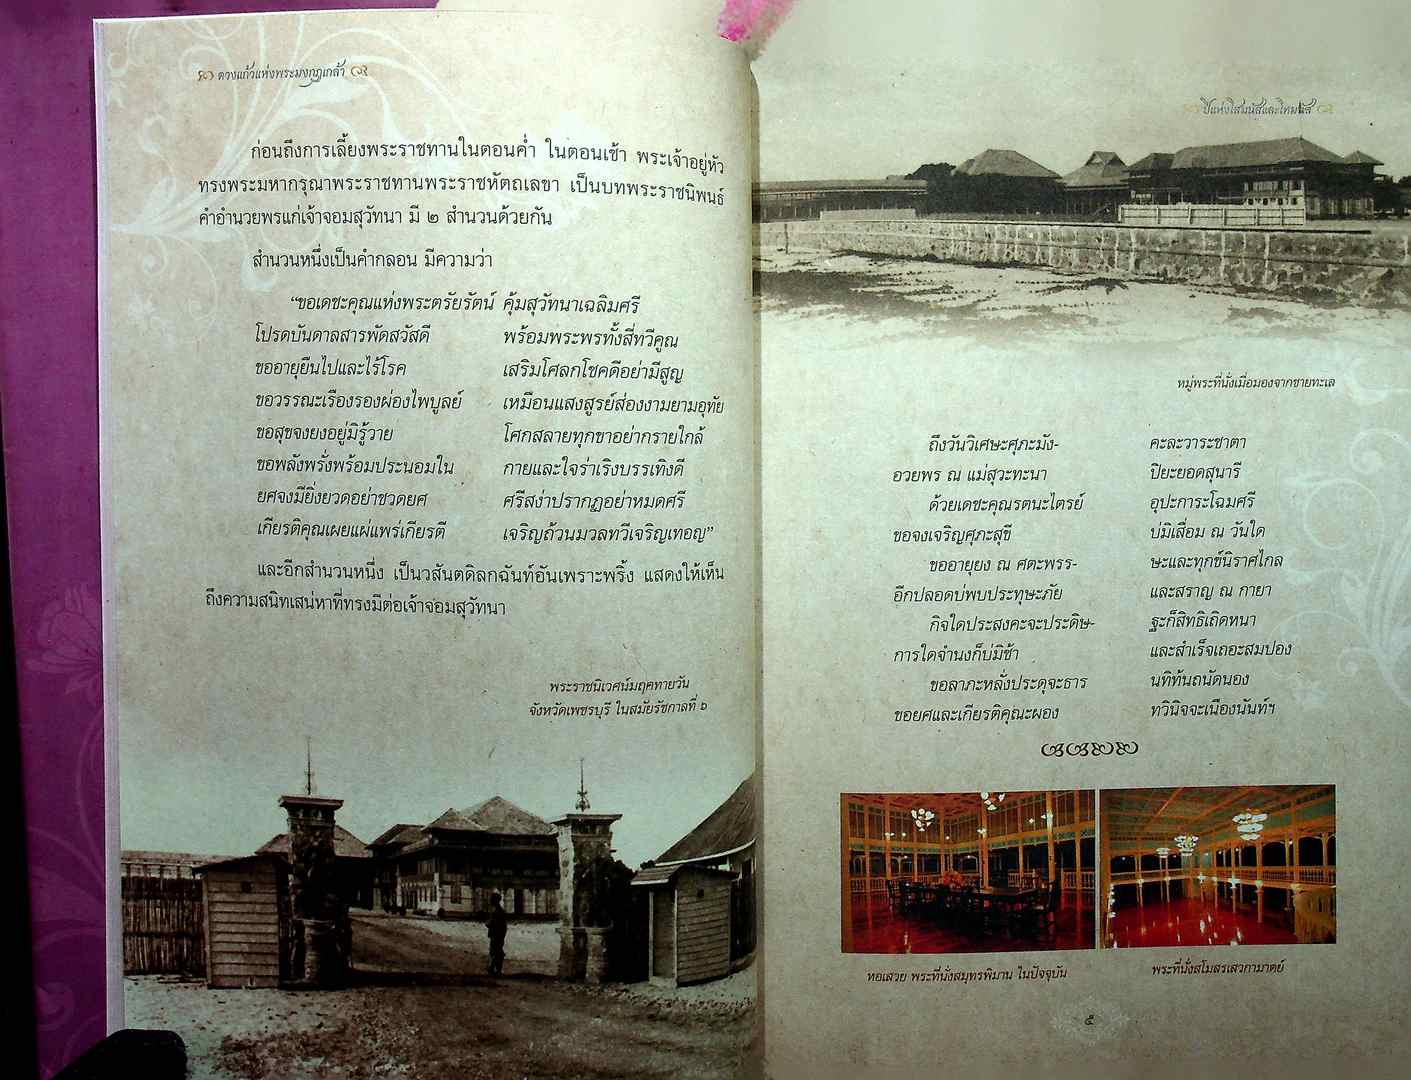 ดวงแก้วแห่งพระมงกุฎเกล้า
ก่อนถึงการเลี้ยงพระราชทานในตอนค่ำ ในตอนเช้า พระเจ้าอยู่หัว
ทรงพระมหากรุณาพระราชทานพระราชหัตถเลขา เป็นบทพระราชนิพนธ์
คำอำนวยพรแก่เจ้าจอมสุวัทนา มี ๒ สำนวนด้วยกัน
สำนวนหนึ่งเป็นคำกลอน มีความว่า
“ขอเดชะคุณแห่งพระตรัยรัตน์ คุ้มสุวัทนาเฉลิมศรี
โปรดบันดาลสารพัดสวัสดี พร้อมพระพรทั้งสี่ทวีคูณ
ขออายุยืนไปและไร้โรค เสริมโศลกโชคดีอย่ามีสูญ
ขอวรรณะเรืองรองผ่องไพบูลย์ เหมือนแสงสูรย์ส่องงามยามอุทัย
ขอสุขจงยงอยู่มิรู้วาย โศกสลายทุกขาอย่ากรายใกล้
ขอพลังพรั่งพร้อมประนอมใน กายและใจร่าเริงบรรเทิงดี
ยศจงมียิ่งยวดอย่าชวดยศ ศรีสง่าปรากฏอย่าหมดศรี
เกียรติคุณเผยแผ่แพร่เกียรตี เจริญถ้วนมวลทวีเจริญเทอญ”
และอีกสำนวนหนึ่ง เป็นวสันตดิลกฉันท์อันเพราะพริ้ง แสดงให้เห็น
ถึงความสนิทเสน่หาที่ทรงมีต่อเจ้าจอมสุวัทนา
พระราชนิเวศน์มฤคทายวัน
จังหวัดเพชรบุรี ในสมัยรัชกาลที่ ๖
ปีแห่งโสมนัสและโทมนัส
หมู่พระที่นั่งเมื่อมองจากชายทะเล
ถึงวันวิเศษะศุภะมัง- คะละวาระชาตา
อวยพร ณ แม่สุวะทะนา ปิยะยอดสุนารี
ด้วยเดชะคุณรตนะไตรย์ อุปะการะโฉมศรี
ขอจงเจริญศุภะสุขี บ่มิเสื่อม ณ วันใด
ขออายุยง ณ ศตะพรร- ษะและทุกข์นิราศไกล
อีกปลอดบ่พบประทุษะภัย และสราญ ณ กายา
กิจใดประสงคะจะประดิษ- ฐะก็สิทธิเถิดหนา
การใดจำนงก็บ่มิช้า และสำเร็จเถอะสมปอง
ขอลาภะหลั่งประดุจะธาร นทิท้นถนัดนอง
ขอยศและเกียรติคุณะผอง ทวินิจจะเนืองนันท์ฯ
หอเสวย พระที่นั่งสมุทรพิมาน ในปัจจุบัน
พระที่นั่งสโมสรเสวกามาตย์
๕